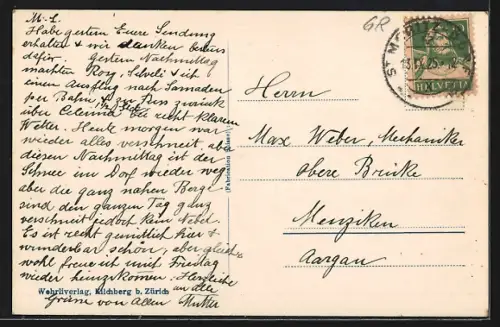 M. L.
Habe gestern Euere Sendung
erhalten & wir danken bestens
dafür. Gestern Nachmittag
machten Rosy, & ich
einen Ausflug nach Samaden
per Bahn & zu Fuss zurück
über Celerina bei recht klarem
Wetter. Heute morgen war
wieder alles verschneit, aber
diesen Nachmittag ist der
Schnee im Dorf wieder weg
aber die ganz nahen Berge
sind den ganzen Tag ganz
verschneit jedoch kein Nebel.
Es ist recht gemütlich hier &
wunderbar schön, aber gleich-
wohl freue ich mich Freitag
wieder heimzukommen. Herzliche
Grüsse von Allen an alle
Mutter
Wehrliverlag, Kilchberg b. Zürich
GR
ST. MORITZ
HELVETIA
Herrn
Max Weber, Mechaniker
obere Brücke
Menziken
Aargau